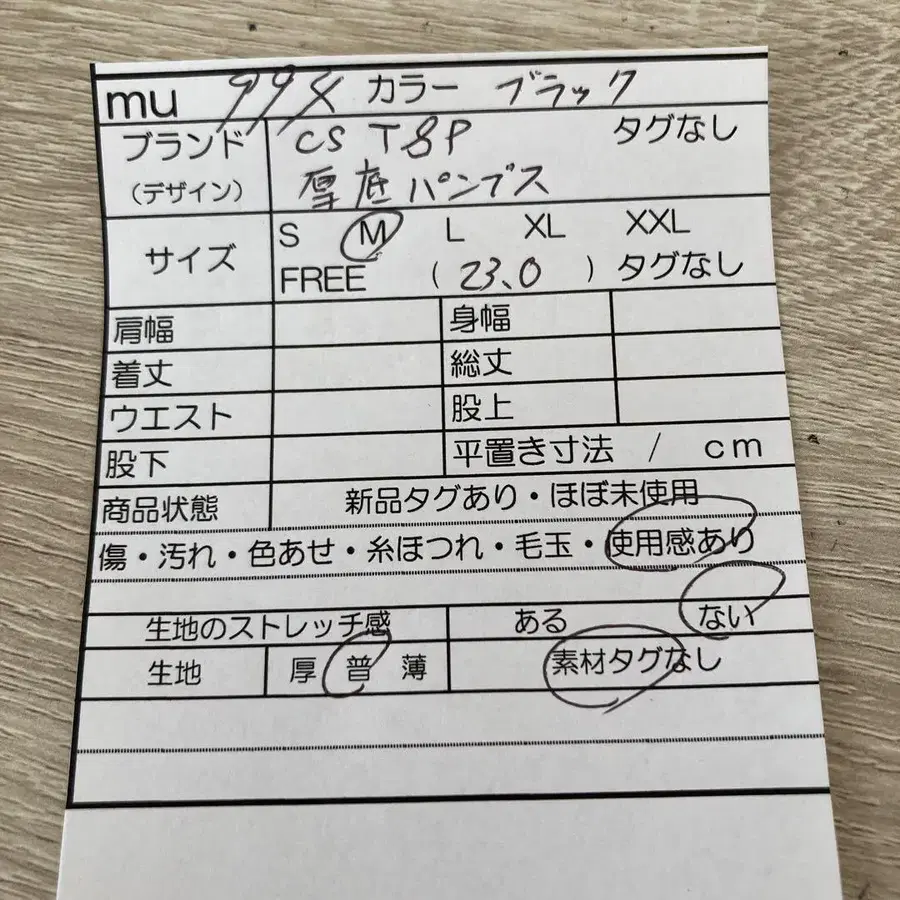 mu 99x カラー ブラック
ブランド CS T&P タグなし
(デザイン) 厚底パンプス
サイズ S M L XL XXL
FREE (23.0) タグなし
肩幅 身幅
着丈 総丈
ウエスト 股上
股下 平置き寸法 / cm
商品状態 新品タグあり・ほぼ未使用
傷・汚れ・色あせ・糸ほつれ・毛玉・使用感あり
生地のストレッチ感 ある ない
生地 厚 普 薄 素材タグなし